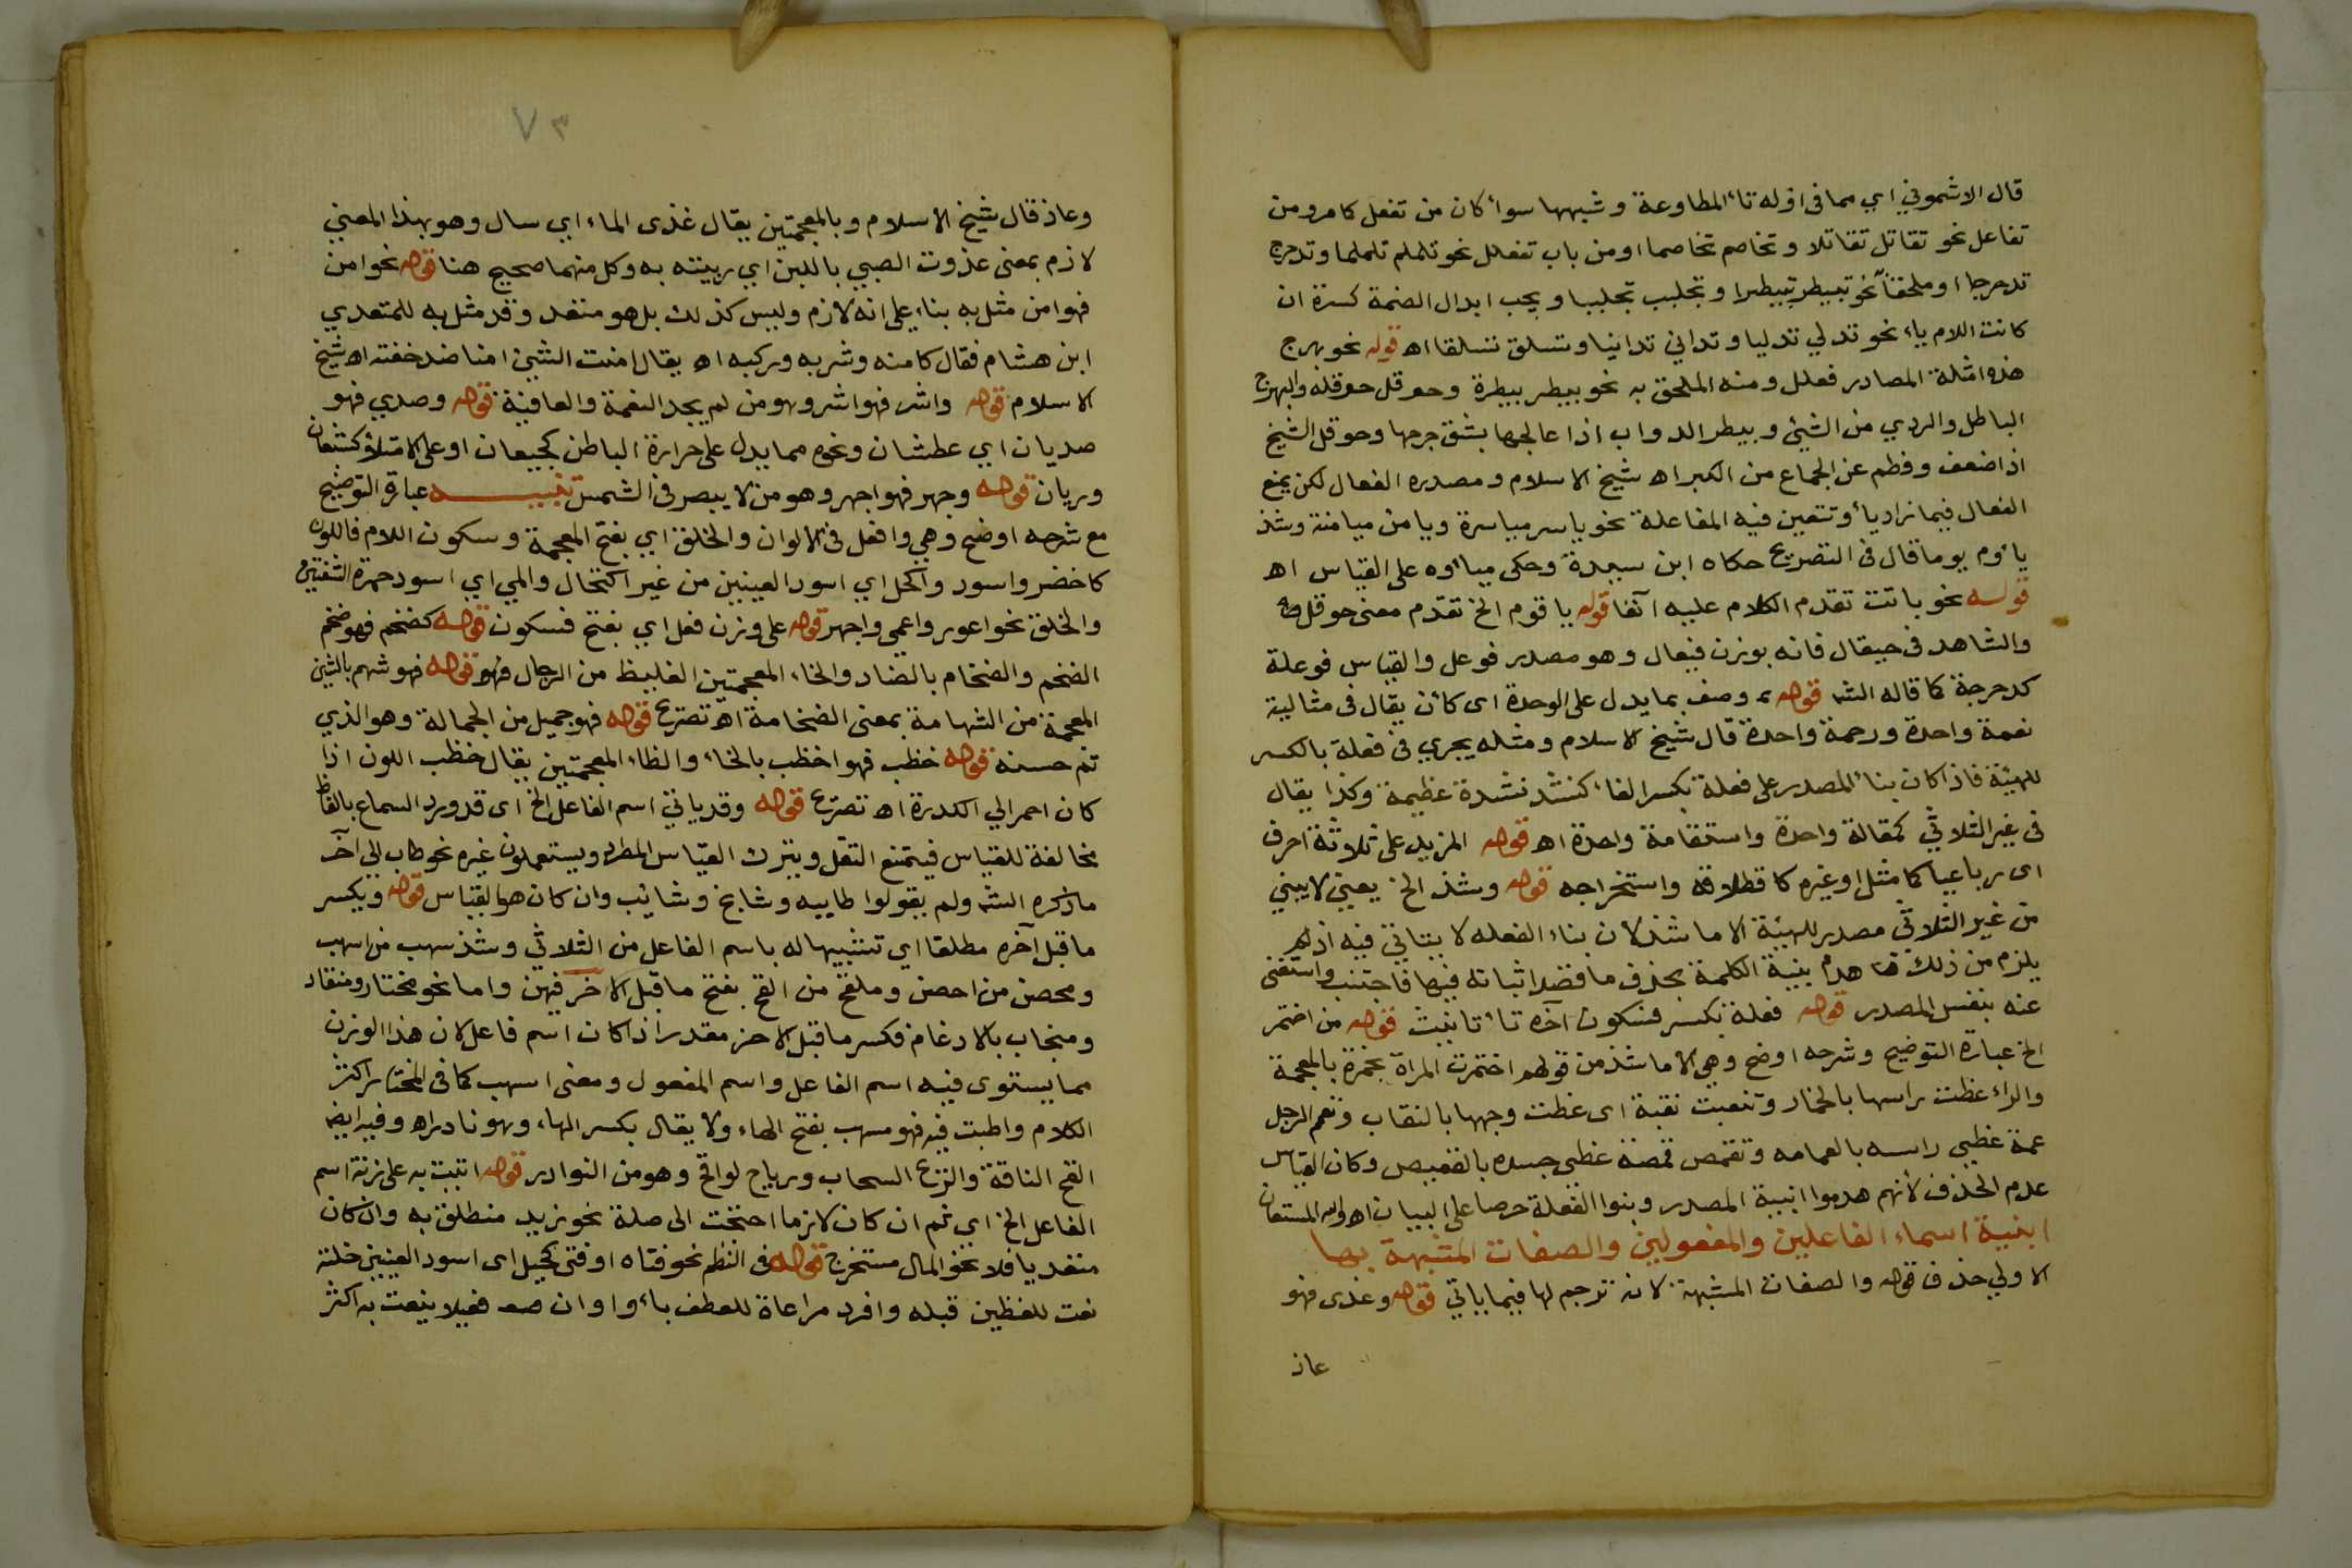 قال الاشموني اي مما في اوله تاء المطاوعة وشبهها سواء كان من تفعل كامر ومن
تفاعل نحو تقاتل تقاتلا وتخاصم تخاصما او من باب تفعلل نحو تلملم تلملما وتدحرج
تدحرجا او ملحقا نحو تبيطر تبيطرا وتجلبب تجلببا ويجب ابدال الضمة كسرة ان
كانت اللام ياء نحو تدلي تدليا وتداني تدانيا وتسلق تسلقا اه قوله نحو بهرج
هذه امثلة المصادر فعلل ومنه الملحق به نحو بيطر بيطرة وحوقل حوقلة والبهرج
الباطل والردي من الشيئ وبيطر الدواب اذا عالجها بشق جرحها وحوقل الشيخ
اذا ضعف وفطم عن الجماع من الكبر اه شيخ الاسلام ومصدره الفعال لكن يمنع
الفعال فيما زاد ياء وتتعين فيه المفاعلة نحو ياسر مياسرة ويامن ميامنة وشذ
ياوم يوما قال في التصريح حكاه ابن سيدة وحكي مياومه على القياس اه
قوله نحو باتت تقدم الكلام عليه آنفا قوله يا قوم الخ تقدم معنى حوقل
والشاهد في حيقال فانه بوزن فيعال وهو مصدر فوعل والقياس فوعلة
كدحرجة كما قاله الشه قوله وصف بما يدل على الوحدة اى كان يقال في مثاليه
نعمة واحدة ورحمة واحدة قال شيخ الاسلام ومثله يجري في فعلة بالكسر
للهيئة فاذا كان بناء المصدر على فعلة بكسر الفاء كنشد نشدة عظيمة وكذا يقال
في غير الثلاثي كمقالة واحدة واستقامة واحدة اه قوله المزيد على ثلاثة احرف
اى رباعيا كما مثل او غيره كانطلاقه واستخراجه قوله وشذ الخ يعني لا يبني
من غير الثلاثي مصدر للهيئة الا ما شذ لان بناء الفعله لا يتاتي فيه اذ لم
يلزم من ذلك هدم بنية الكلمة بحذف ما قصد اثباته فيها فاجتنب واستغنى
عنه بنفس المصدر قوله فعلة بكسر فسكون آخره تاء تانيث قوله من اختمر
الخ عبارة التوضيح وشرحه اوضح وهي الا ما شذ من قولهم اختمرت المراة بخمرة بالمعجمة
والراء غطت راسها بالخمار وتنقبت نقبة اى غطت وجهها بالنقاب وتعمم الرجل
عمة غطي راسه بالعمامه وتقمص قمصة غطي جسده بالقميص وكان القياس
عدم الحذف لانهم هدموا ابنية المصدر وبنوا الفعلة حرصا على البيان اه والله المستعان
ابنية اسماء الفاعلين والمفعولين والصفات المشبهة بها
الاولي حذف قوله والصفات المشبهة لانه ترجم لها فيما ياتي قوله وغذى فهو
عاذ
٧٣
وعاذ قال شيخ الاسلام وبالمعجمتين يقال غذى الماء اي سال وهو بهذا المعني
لازم بمعنى غذوت الصبي باللبن اي ربيته به وكل منهما صحيح هنا قوله نحو امن
فهو امن مثل به بناء على انه لازم وليس كذلك بل هو متعد وقد مثل به للمتعدي
ابن هشام فقال كامنه وشربه وركبه اه يقال امنت الشيئ امنا ضد خفته اه شيخ
الاسلام قوله واشر فهو اشر وهو من لم يجد النعمة والعافية قوله وصدي فهو
صديان اي عطشان ونحوه مما يدل على حرارة الباطن كجيعان او على الامتلاء كشبعان
وريان قوله وجهر فهو اجهر وهو من لا يبصر في الشمس تنبيه عبارة التوضيح
مع شرحه اوضح وهي وافعل في الالوان والخلق اي بفتح المعجمة وسكون اللام فاللون
كاخضر واسود واكحل اي اسود العينين من غير اكتحال والمي اي اسود حمرة الشفتين
والخلق نحو اعور واعمي واجهر قوله على وزن فعل اي بفتح فسكون قوله كضخم فهو ضخم
الضخم والضخام بالضاد والخاء المعجمتين الغليظ من الرجال قوله فهو شهم بالشين
المعجمة من الشهامة بمعنى الضخامة اه تصريح قوله فهو جميل من الجمالة وهو الذي
تم حسنه قوله خظب فهو اخظب بالخاء والظاء المعجمتين يقال خظب اللون اذا
كان احمر الي الكدرة اه تصريح قوله وقد ياتي اسم الفاعل الخ اى قد ورد السماع بالفاظ
مخالفة للقياس فيتمنع النقل ويترك القياس المطرد ويستعملون غيره نحو طاب الي آخر
ما ذكره الشه ولم يقولوا طاييه وشايخ وشائب وان كان هو القياس قوله وبكسر
ما قبل آخره مطلقا اي تشبيها له باسم الفاعل من الثلاثي وشذ سهب من اسهب
ومحصن من احصن وملقح من القح بفتح ما قبل الاخر فيهن واما نحو مختار ومنقاد
ومنجاب بالادغام فكسر ما قبل الاخر مقدر اذا كان اسم فاعل لان هذا الوزن
مما يستوى فيه اسم الفاعل واسم المفعول ومعنى اسهب كما في المختار اكثر
الكلام واطنب فيه فهو مسهب بفتح الهاء ولا يقال بكسر الهاء وهو نادر اه وفيه ايضا
القح الناقة والريح السحاب ورياح لواقح وهو من النوادر قوله اتيت به على زنة اسم
الفاعل الخ اي ثم ان كان لازما احتجت الى صلة نحو زيد منطلق به وان كان
متعديا فلا نحو المال مستخرج قوله في النظم نحو فتاه او فتى كحيل اى اسود العينين خلقة
نعت للفظين قبله وافرد مراعاة للعطف باو وان صح فعيلا ينعت به اكثر